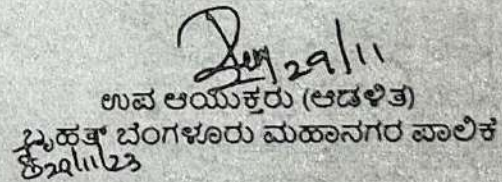 29/11
ಉಪ ಆಯುಕ್ತರು (ಆಡಳಿತ)
ಬೃಹತ್ ಬೆಂಗಳೂರು ಮಹಾನಗರ ಪಾಲಿಕೆ
29/11/23